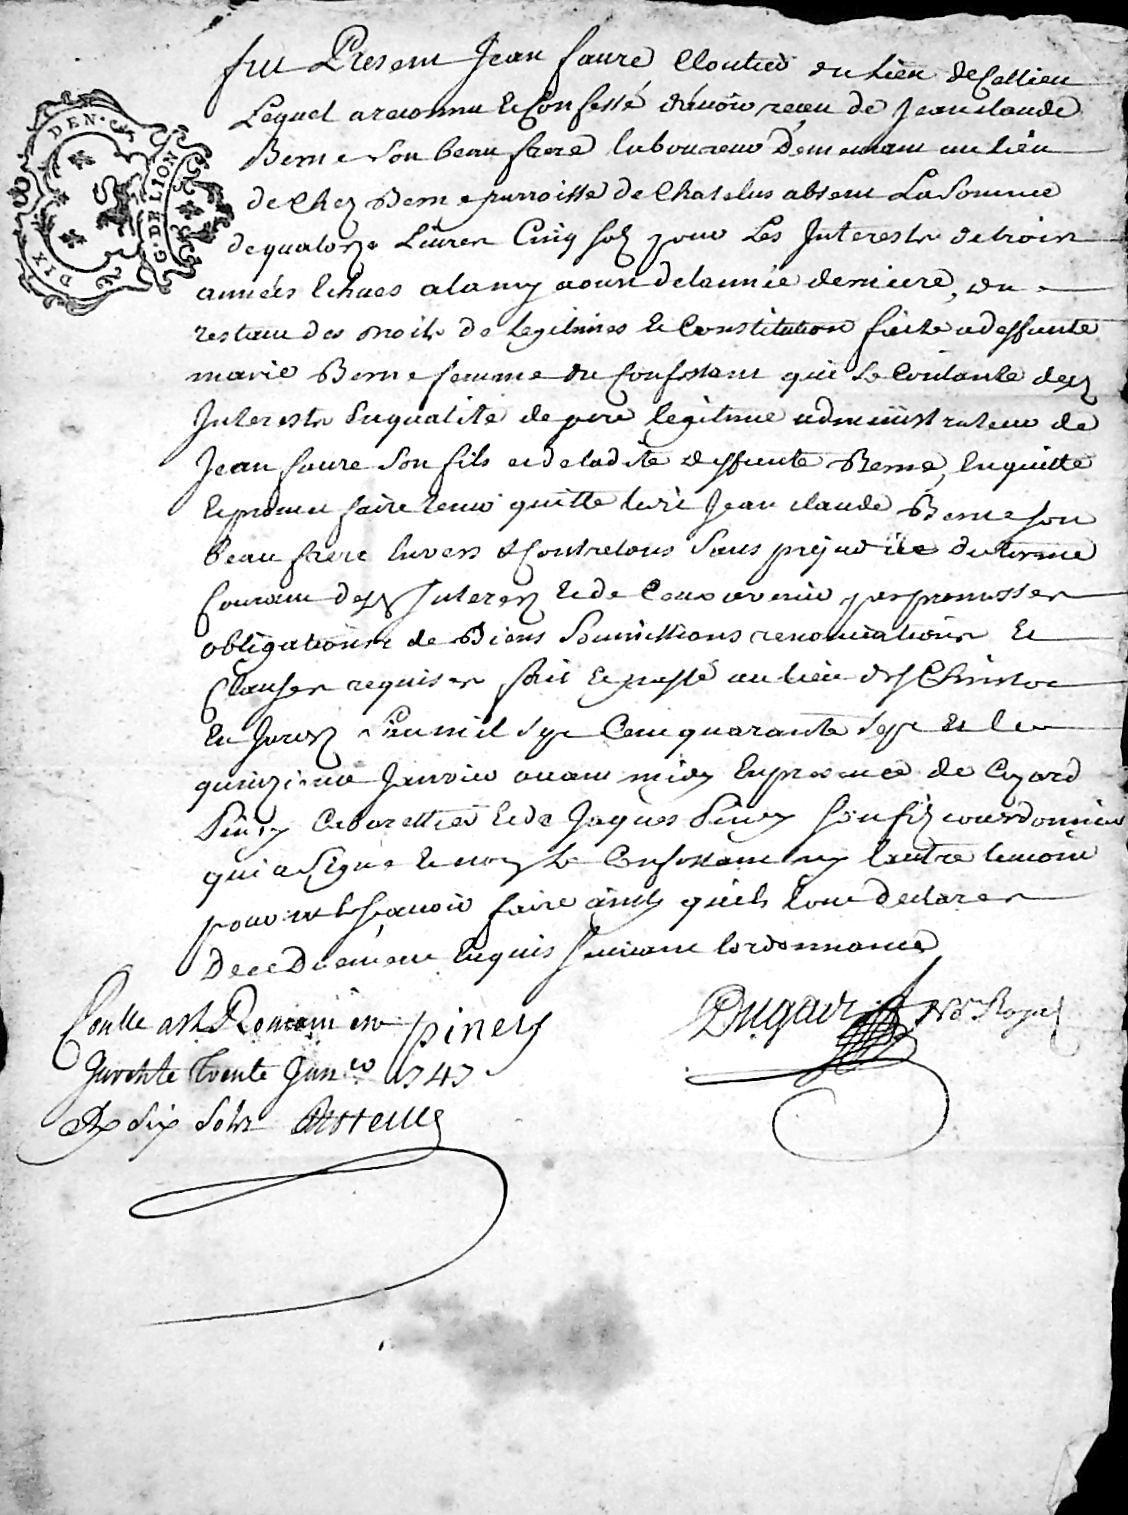 DIX DEN. G. DE LION
fut Present Jean faure Cloutier du Lieu de Cellieu
Lequel a reconnu et Confessé d'avoir receu de Jean claude
Berne son beau frere laboureur Demeurant au lieu
de Chez Berne parroisse de Chatelus absent La somme
de quatorze Livres Cinq solz pour Les Interests de trois
années Echues a la my aoust de lannée derniere, du
restant des droits de legitimes et Constitution faite a deffunte
marie Berne femme du Confessant qui se Contante desd
Interests En qualité de pere legitime administrateur de
Jean faure son fils et de ladite deffunte Berne, En quitte
et promet faire tenir quitte ledit Jean claude Berne son
beau frere Envers et Contre tous sans prejudice du terme
Courant desd Interez et de Ceux avenir par promesses
obligations de Biens soumissions renonciations et
Clauses requises fait et passé au lieu de St Christo
En Jarez L'an mil sept Cent quarante sept et le
quinzieme Janvier avant midy En presence de
Piney Cabarettier et de Jaques Piney son fils courdonnier
qui a signé et non Le Confessant ny lautre temoin
pour ne le sçavoir faire ainsy quils l'ont declarer
De ce Duement Enquis suivant lordonnance
Conlle a St Romain en piney Dugair Nore Royal
Jarest le trente Janer 1747
R six sols